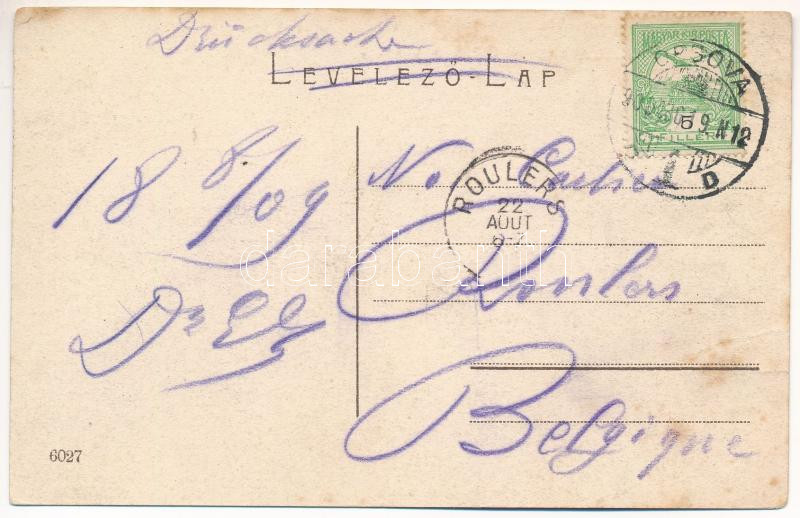 Drucksache
LEVELEZŐ-LAP
MAGYAR KIR. POSTA
FILLÉR
ORSOVA
D
ROULERS
22
AOUT
18 8/09
Roulers
Belgique
6027
darabanth